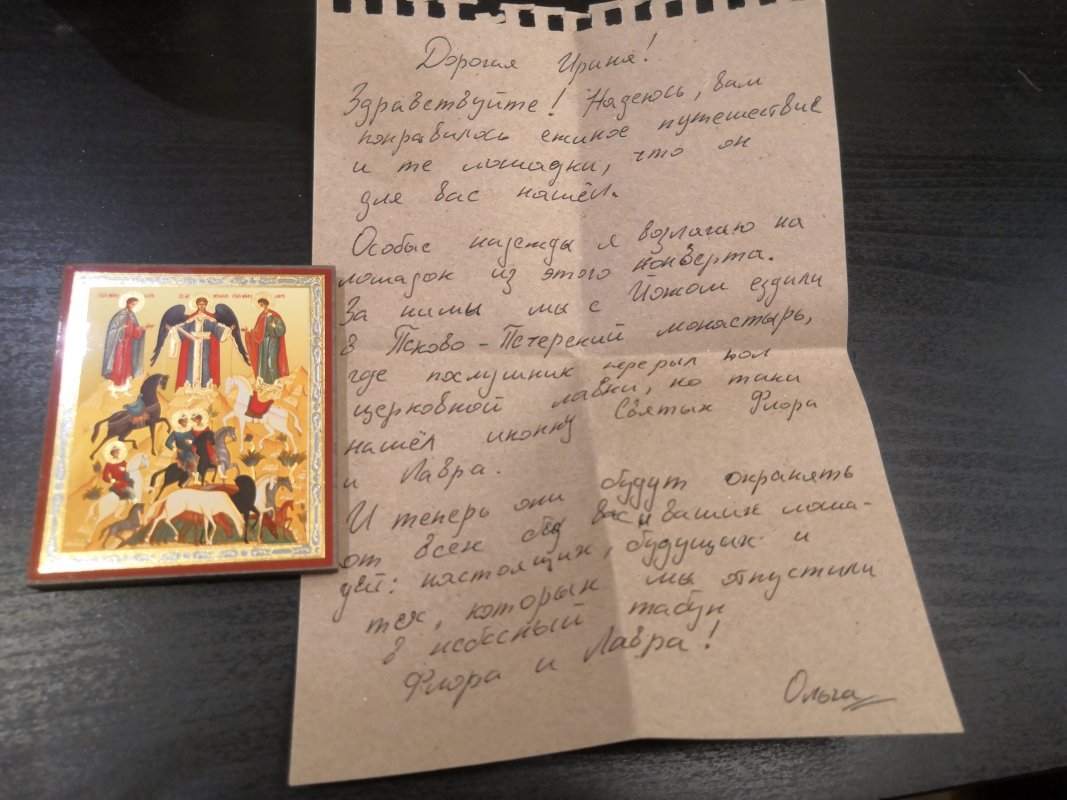 Дорогая Ирина!
Здравствуйте! Надеюсь, вам
понравилось ёжиное путешествие
и те лошадки, что он
для вас нашёл.
Особые надежды я возлагаю на
лошадок из этого конверта.
За ними мы с Йожом ездили
в Псково-Петерский монастырь,
где послушник перерыл пол
церковной лавки, но таки
нашёл иконку Святых Флора
и Лавра.
И теперь они будут охранять
от всех бед вас и ваших лоша-
дей: настоящих, будущих и
тех, которых мы отпустили
в небесный табун
Флора и Лавра!
Ольга